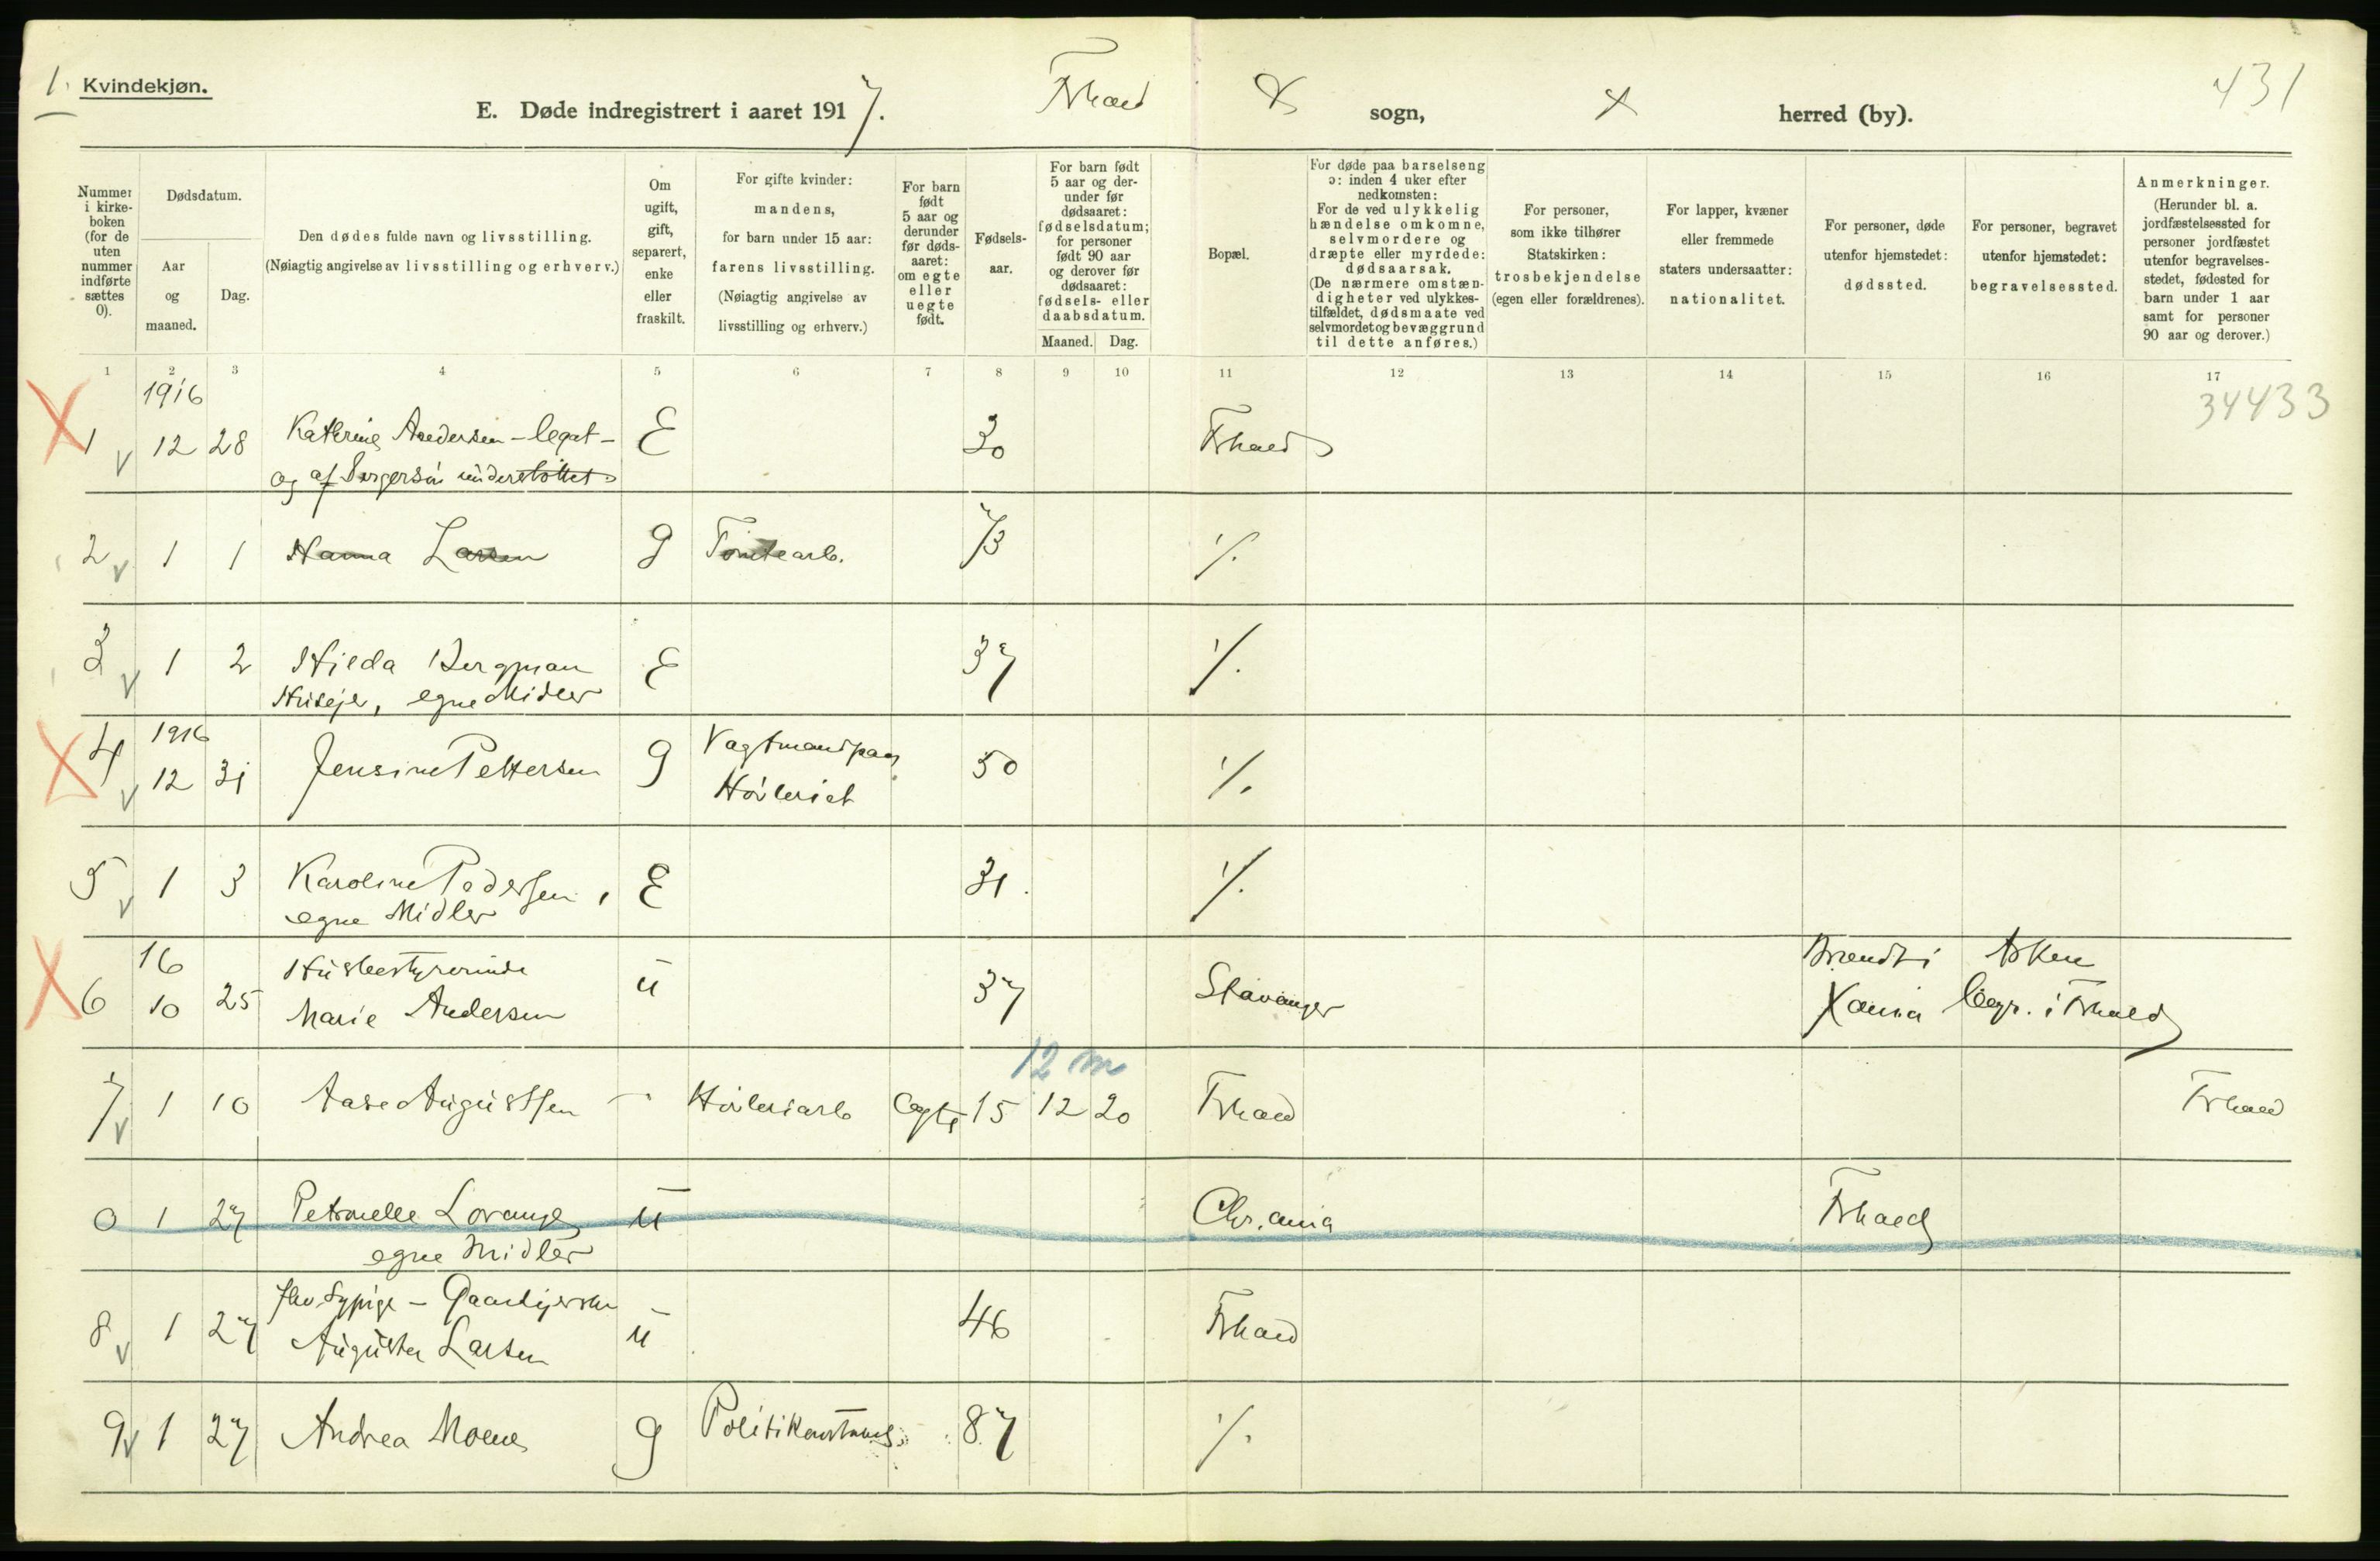 1. Kvindekjøn.
E. Døde indregistrert i aaret 1917. Frhald sogn, herred (by).
431
Nummer i kirkeboken (for de uten nummer indførte sættes 0).
Dødsdatum.
Aar og maaned.
Dag.
Den dødes fulde navn og livsstilling.
(Nøiagtig angivelse av livsstilling og erhverv.)
Om ugift, gift, separert, enke eller fraskilt.
For gifte kvinder: mandens, for barn under 15 aar: farens livsstilling. (Nøiagtig angivelse av livsstilling og erhverv.)
For barn født 5 aar og derunder før dødsaaret: om egte eller uegte født.
Fødselsaar.
For barn født 5 aar og derunder før dødsaaret: fødselsdatum; for personer født 90 aar og derover før dødsaaret: fødsels- eller daabsdatum.
Maaned. Dag.
Bopæl.
For døde paa barselseng ɔ: inden 4 uker efter nedkomsten: For de ved ulykkelig hændelse omkomne, selvmordere og dræpte eller myrdede: dødsaarsak. (De nærmere omstændigheter ved ulykkestilfældet, dødsmaate ved selvmordet og bevæggrund til dette anføres.)
For personer, som ikke tilhører Statskirken: trosbekjendelse (egen eller forældrenes).
For lapper, kvæner eller fremmede staters undersaatter: nationalitet.
For personer, døde utenfor hjemstedet: dødssted.
For personer, begravet utenfor hjemstedet: begravelsessted.
Anmerkninger.
(Herunder bl. a. jordfæstelsessted for personer jordfæstet utenfor begravelsesstedet, fødested for barn under 1 aar samt for personer 90 aar og derover.)
1 2 3 4 5 6 7 8 9 10 11 12 13 14 15 16 17
34433
1916
1 12 28 Kathrine Andersen - legat - E 30 Frhald
og af understöttet
2 1 1 Hanna Larsen g Tomtearb. 73 %
3 1 2 Hilda Bergman E 37 %
Huseje, egne Midler
1916
4 12 31 Jensine Pettersen g Vagtmand paa Hövleriet 50 %
5 1 3 Karoline Pedersen, E 31 %
egne Midler
16
6 10 25 Husbestyrerinde ü 37 Stavanger Brendt i Asken
Marie Andersen Xania begr. i Frhald
12 m
7 1 10 Aase Augustsen - Hövleriarb egte 15 12 20 Frhald Frhald
0 1 27 Petronelle Lorange ü Chr.ania Frhald
egne Midler
8 1 27 fhv. Sypige - Gaardejerske ü 46 Frhald
Augusta Larsen
9 1 27 Andrea Moene g Politikonstabel 87 %